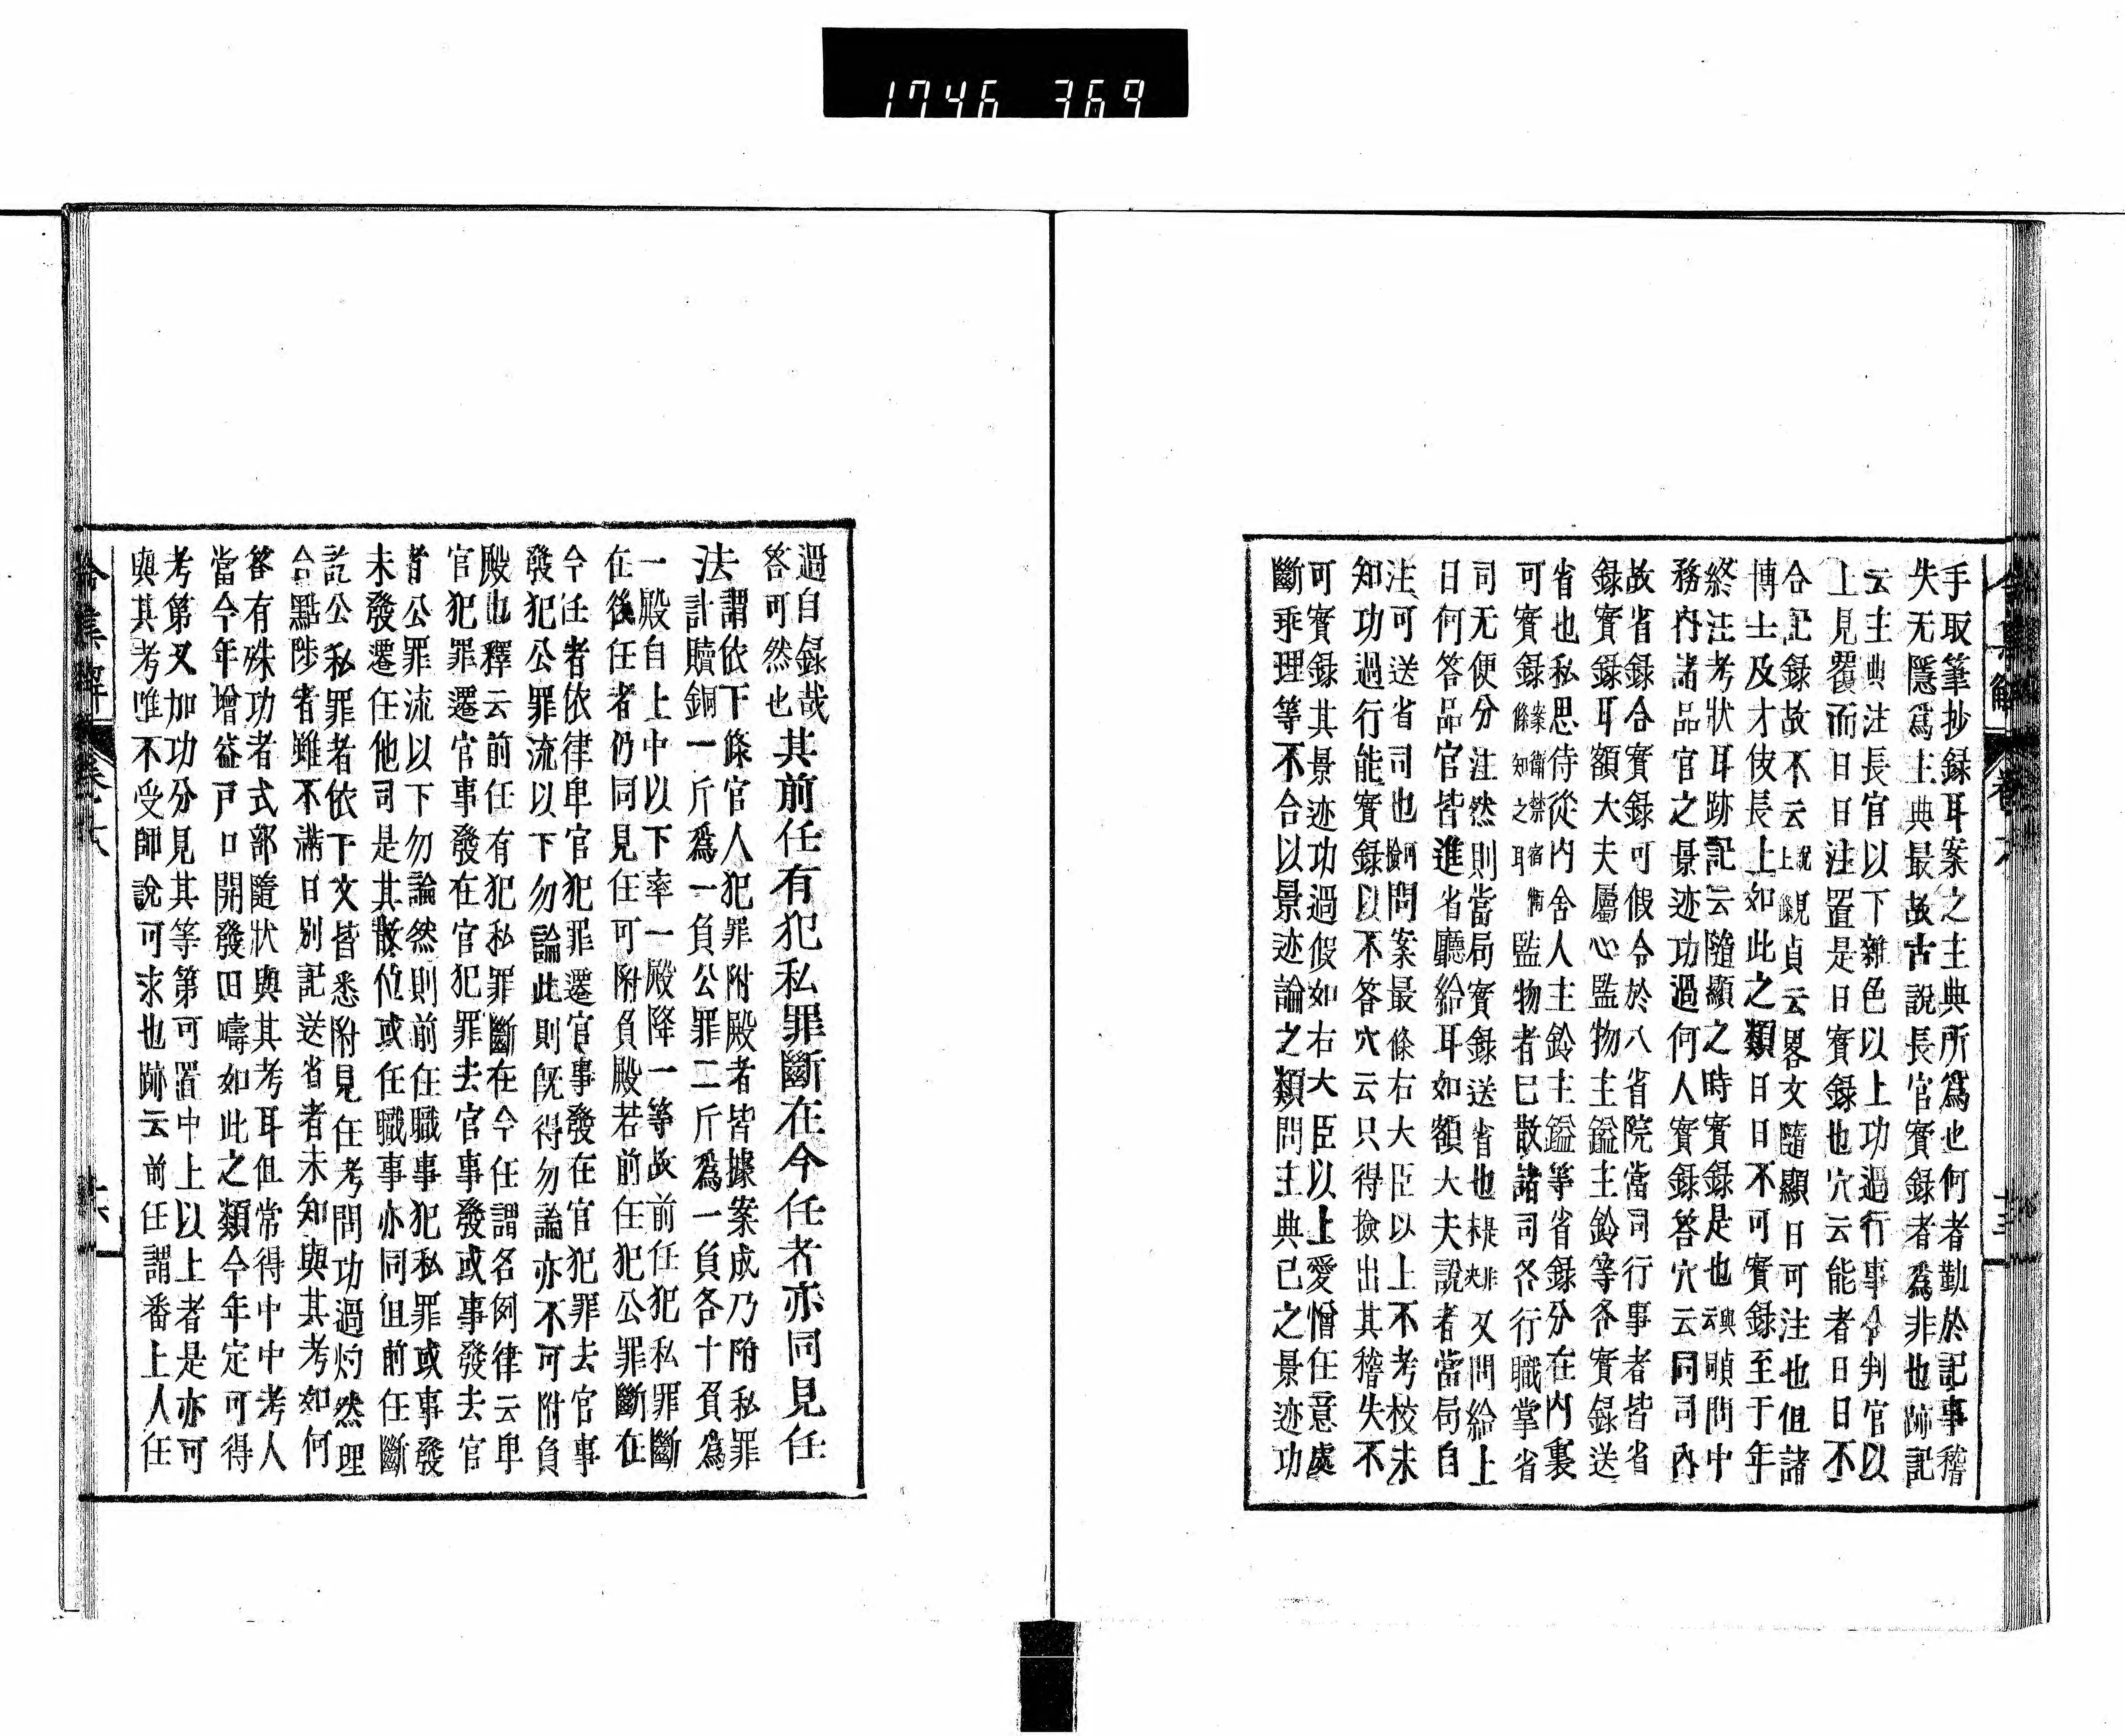 1746 369
手取筆抄録耳案之主典所為也何者勤於記事稽
失无隱爲主典最故古説長官實録者爲非也跡記
云主典注長官以下雜色以上功過行事令判官以
上見覆而日日注置是日實録也穴云能者日日不
合記録故不云説見上條貞云畧文隨顯日可注也但諸
博士及才伎長上如此之類日日不可實録至于年
終注考狀耳跡記云隨顯之時實録是也與云頤問中
務内諸品官之景迹功過何人實録答穴云同司内
故省録合實録可假令於八省院當司行事者皆省
録實録耳額大夫屬心監物主鎰主鈴等各實録送
省也私思侍從内舍人主鈴主鎰等省録分在内裏
可實録監物者已散諸司各行職掌省
司无便分注然則當局實録送省也又問給上
日何答品官皆進省廳給耳如額大夫説者當局自
注可送省司也問案最條右大臣以上不考校未
知功過行能實録以不答穴云只得撿出其稽失不
可實録其景迹功過假如右大臣以上愛憎任意處
斷乖理等不合以景迹論之類問主典已之景迹功
過自録哉
答可然也其前任有犯私罪斷在今任者亦同見任
法謂依下條官人犯罪附殿者皆據案成乃附私罪
計贖銅一斤爲一負公罪二斤爲一負各十負爲
一殿自上中以下率一殿降一等故前任犯私罪斷
在後任者仍同見任可附負殿若前任犯公罪斷在
今任者依律卑官犯罪遷官事發在官犯罪去官事
發犯公罪流以下勿論此則既得勿論亦不可附負
殿也釋云前任有犯私罪斷在今任謂名例律云卑
官犯罪遷官事發在官犯罪去官事發或事發去官
者公罪流以下勿論然則前任職事犯私罪或事發
未發遷任他司是其散位或任職事亦同但前任斷
訖公私罪者依下文皆悉附見任考問功過灼然理
合黜陟者雖不滿日別記送省者未知與其考如何
答有殊功者式部隨狀與其考耳但常得中中考人
當今年增益戸口開發田疇如此之類今年定可得
考第又加功分見其等第可置中上以上者是亦可
與其考唯不受師説可求也跡云前任謂番上人任
令集解 卷六